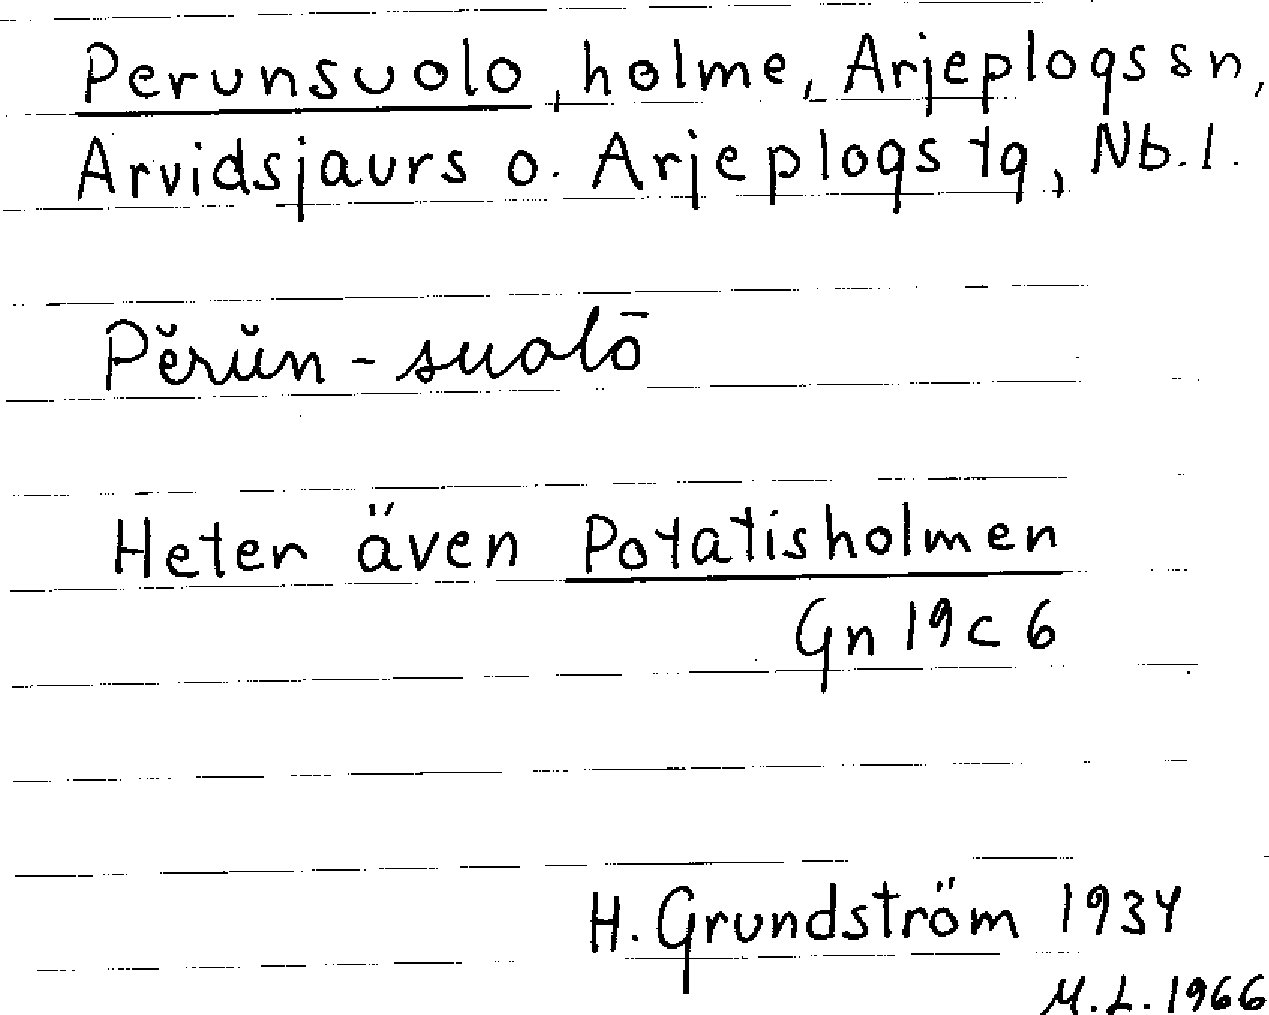 Perunsuolo, holme, Arjeplogs sn,
Arvidsjaurs o. Arjeplogs tg, Nb. l.
Pĕrŭn-suolō
Heter även Potatisholmen
Gn 19c 6
H. Grundström 1934
M. L. 1966